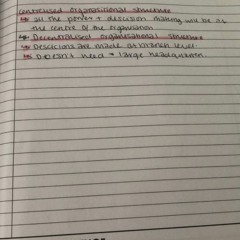 centralised organisational structure
↳ all the power + descision making will be at
the centre of the organisation
↳ Decentralised organisational structure
↳ Descicions are made at branch level
↳ Doesn't need a large headquarters